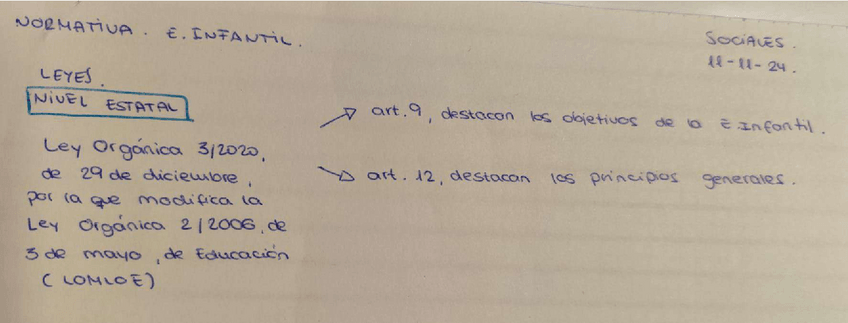 NORMATIVA. E. INFANTIL.
SOCIALES.
11-11-24.
LEYES.
NIVEL ESTATAL
Ley Orgánica 3/2020,
de 29 de diciembre,
por la que modifica la
Ley Orgánica 2/2006, de
3 de mayo, de Educación
(LOMLOE)
art. 9, destacan los objetivos de la E. Infantil.
art. 12, destacan los principios generales.